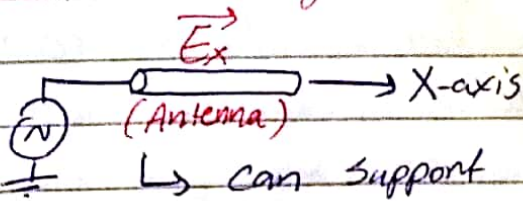 Ex
X-axis
(Antenna)
↳ can support